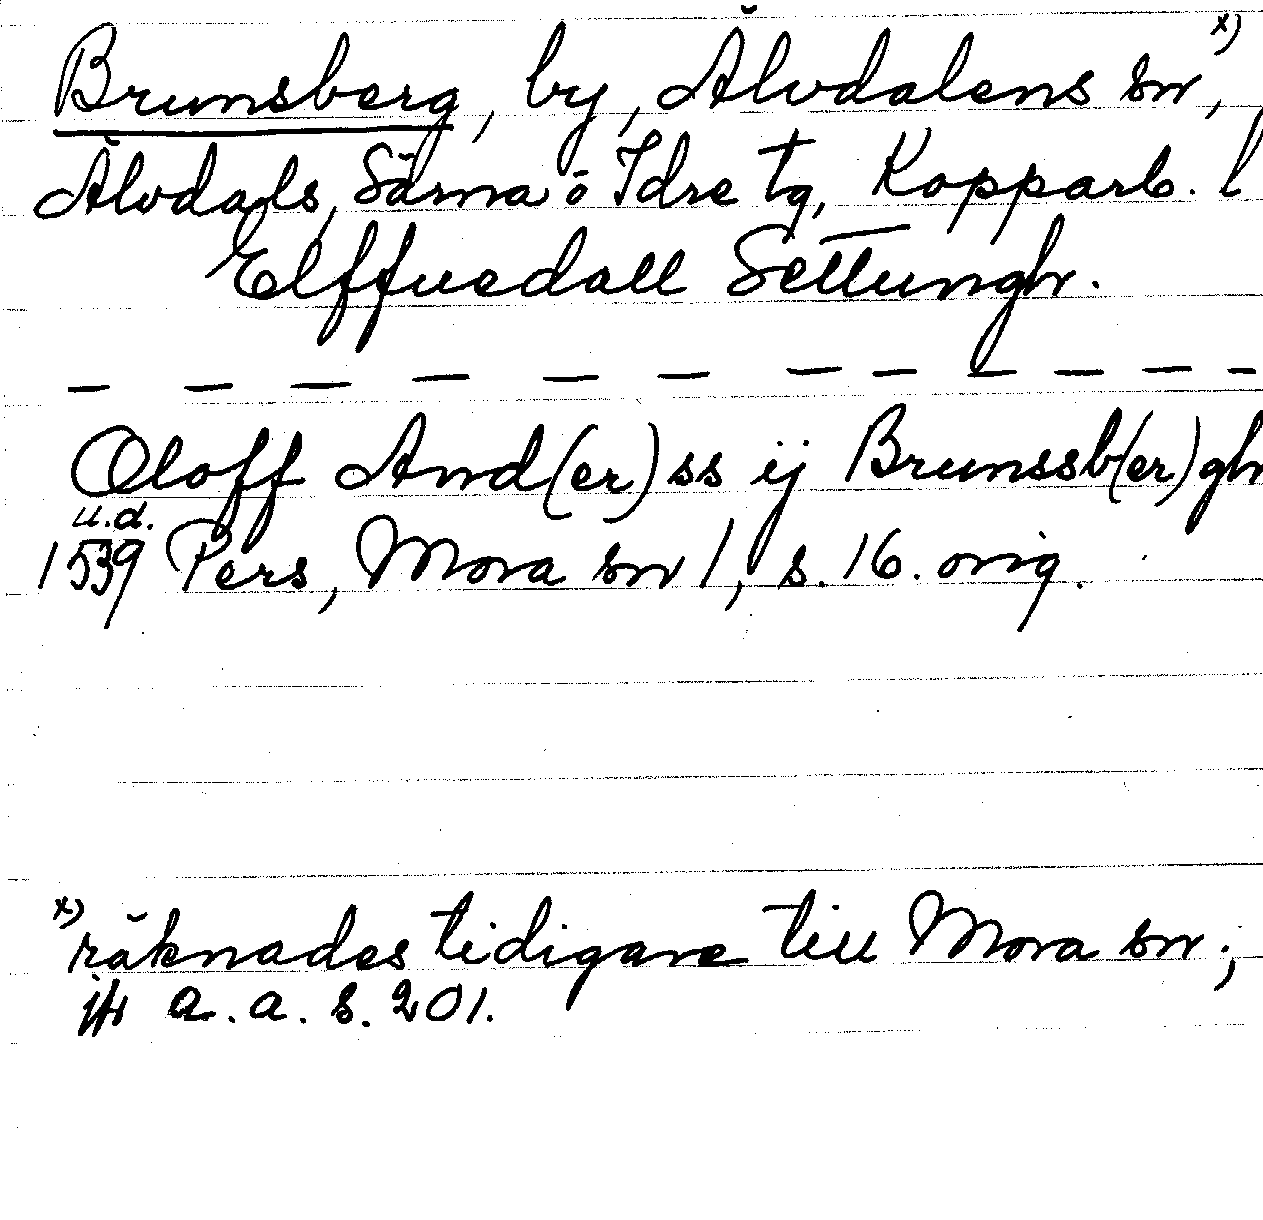 Brunsberg, by, Älvdalens sn, x)
Älvdals, Särna o Idre tg, Kopparb. l
Elffuedall Settungh.
— — — — — — — — — — —
Oloff And(er)ss ij Brunssb(er)gh
u.d.
1539 Pers, Mora sn 1, s. 16. orig.
x) räknades tidigare till Mora sn;
jfr a.a. s. 201.